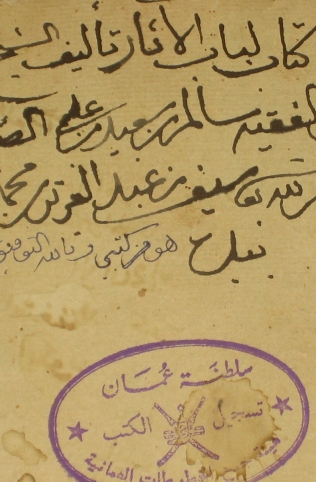 كتاب لباب الآثار تأليف الشيخ
الفقيه سالم بن سعيد بن علي
سيف بن عبد العزيز بن محمد
بيده
هو من كتبي وبالله التوفيق
سلطنة عُمان
تسجيل الكتب
المخطوطات العمانية